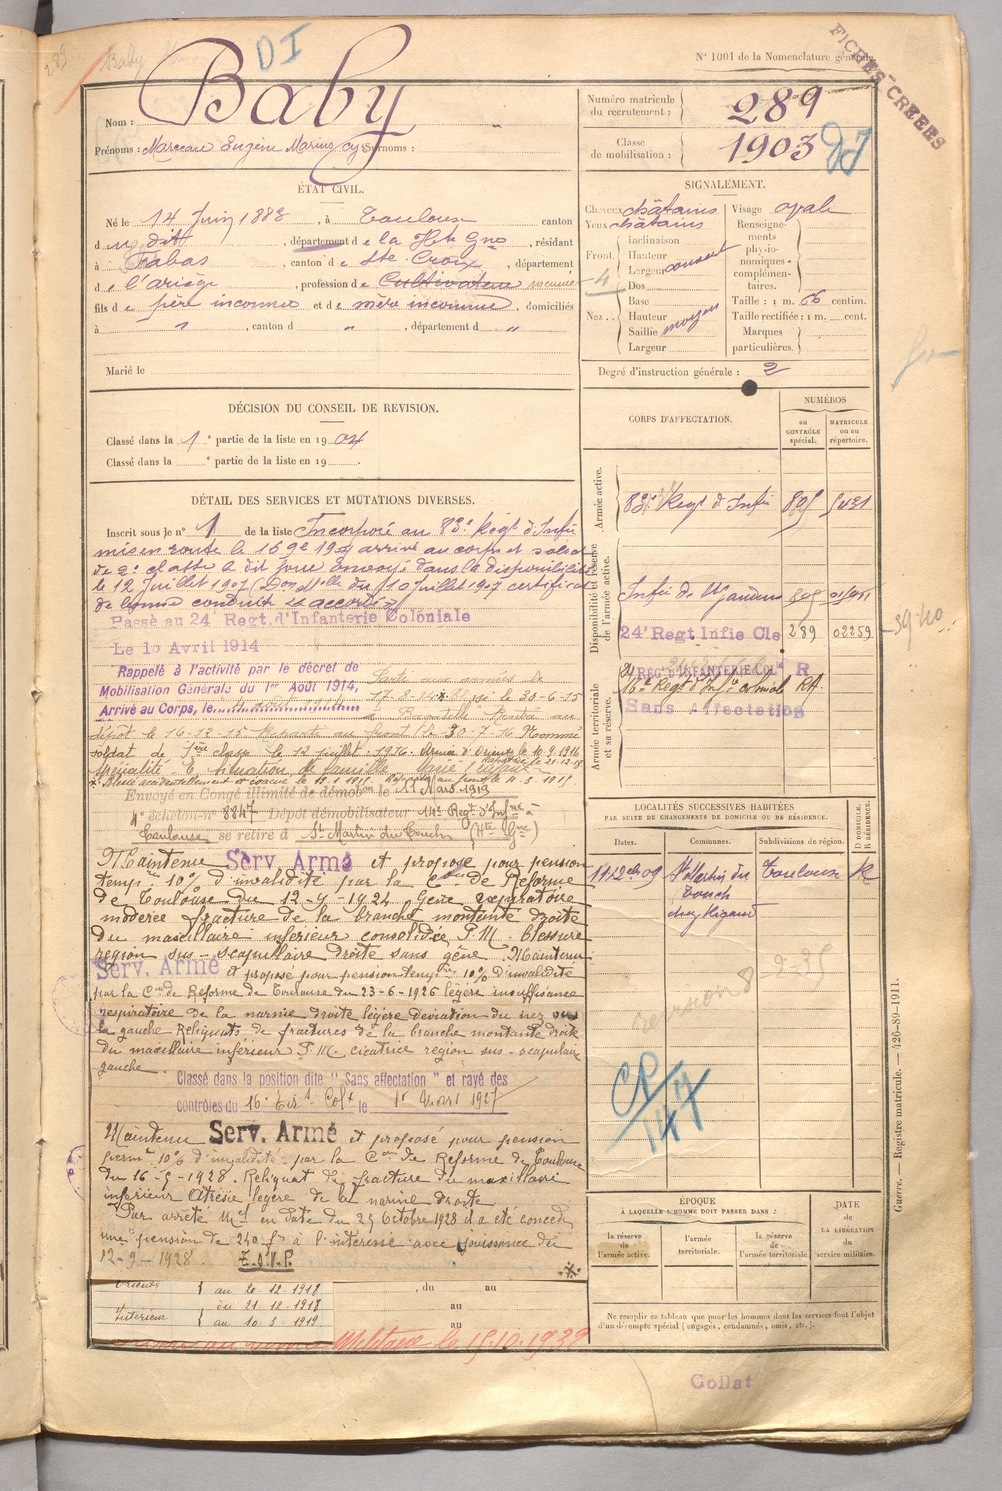 289
DI
N° 1001 de la Nomenclature générale
FICHES CRÉÉES
Nom : Baby
Prénoms : Marceau Eugène Marius Surnoms :
Numéro matricule du recrutement : 289
Classe de mobilisation : 1903
ÉTAT CIVIL.
Né le 14 Juin 1883, à Toulouse canton
d u dit, département de la Hte Gne, résidant
à Fabas, canton de Ste Croix, département
de l'ariège, profession de Cultivateur meunier
fils de père inconnu et de mère inconnue, domiciliés
à " , canton d " , département d "
Marié le
SIGNALEMENT.
Cheveux châtains
Yeux châtains
Front
Inclinaison
Hauteur
Largeur couvert
Nez
Dos
Base
Hauteur
Saillie moyen
Largeur
Visage ovale
Renseignements physionomiques complémentaires.
Taille : 1 m. 66 centim.
Taille rectifiée : 1 m. cent.
Marques particulières.
Degré d'instruction générale : 2
DÉCISION DU CONSEIL DE REVISION.
Classé dans la 1e partie de la liste en 1904
Classé dans la e partie de la liste en 19 .
DÉTAIL DES SERVICES ET MUTATIONS DIVERSES.
Inscrit sous le n° 1 de la liste Incorporé au 83e Regt d'Infie
mis en route le 16 9e 1904 arrivé au corps et soldat
de 2e classe à dit jour envoyé dans la disponibilité
le 12 Juillet 1907 du 10 Juillet 1907 certificat
de bonne conduite accordé
Passé au 24 Regt. d'Infanterie Coloniale
Le 1er Avril 1914
Rappelé à l'activité par le décret de
Mobilisation Générale du 1er Août 1914,
Arrivé au Corps, le
Parti aux armées le
17-8-14 Blessé le 30-6-15
à Bagatelle Rentré au
dépôt le 16-12-15 Reparti au front le 30-7-16 Nommé
soldat de 1ère classe le 12 juillet 1916. Armée d'Orient le 10-9-1916
situation de famille Marié 1 enfant
Envoyé en Congé illimité de démobon le 11 Mars 1919
4e échelon n° 8847 Dépôt démobilisateur 14e Regt d'Infie à
Toulouse se retire à St Martin du Touch (Hte Gne)
Maintenu Serv. Armé et proposé pour pension
tempre 10% d'invalidité par la Con de Réforme
de Toulouse du 12-9-1924 Gêne respiratoire
modérée fracture de la branche montante droite
du maxillaire inférieur consolidée P.M. blessure
région sus-scapulaire droite sans gêne. Maintenu
Serv. Armé et proposé pour pension tempre 10% d'invalidité
par la Con de Réforme de Toulouse du 23-6-1926 légère insuffisance
respiratoire de la narine droite légère déviation du nez vers
la gauche Reliquats de fractures de la branche montante droite
du maxillaire inférieur P.M. cicatrice région sus-scapulaire
gauche.
Classé dans la position dite "Sans affectation" et rayé des
contrôles du 16e Tirs Colx le 1er Mars 1927
Maintenu Serv. Armé et proposé pour pension
permte 10% d'invalidité par la Con de Réforme de Toulouse
du 16-5-1928. Reliquat de fracture du maxillaire
inférieur Atrésie légère de la narine droite
Par arrêté Mel en date du 25 Octobre 1928 il a été concédé
une pension de 240 fs à l'intéressé avec jouissance du
12-9-1928.
Orient
au 20-12-1918
Intérieur
du 21-12-1918
au 10-3-1919
, du au
au
au
Militaire le 15.10.1932
CORPS D'AFFECTATION.
NUMÉROS
au CONTRÔLE spécial.
MATRICULE ou au répertoire.
Armée active.
83e Regt d'Infie
Disponibilité et réserve de l'armée active.
24e Regt Infie Cle 289 02259
39-40
Armée territoriale et sa réserve.
REGt D'INFANTERIE COLle R
16e Regt d'Infie coloniale
Sans Affectation
LOCALITÉS SUCCESSIVES HABITÉES
PAR SUITE DE CHANGEMENTS DE DOMICILE OU DE RÉSIDENCE.
Dates. Communes. Subdivisions de région. D DOMICILE. R RÉSIDENCE.
11 Xbre 09 St Martin du Touch Toulouse R
CP
147
ÉPOQUE
À LAQUELLE L'HOMME DOIT PASSER DANS :
la réserve de l'armée active.
l'armée territoriale.
la réserve de l'armée territoriale
DATE de LA LIBÉRATION du service militaire.
Ne remplir ce tableau que pour les hommes dont les services font l'objet
d'un décompte spécial (engagés, condamnés, omis, etc.).
Guerre. — Registre matricule. — 426-89-1911.
Collat